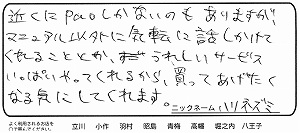 近くにPaoしかないのもありますが、
マニュアル以外に気転に話しかけて
くれることとか、うれしいサービス
いっぱいやってくれるから、買ってあげたく
なる気にしてくれます。
ニックネーム ハリネズミ
よく利用されるお店を
で囲んでください。
立川 小作 羽村 昭島 青梅 高幡 堀之内 八王子